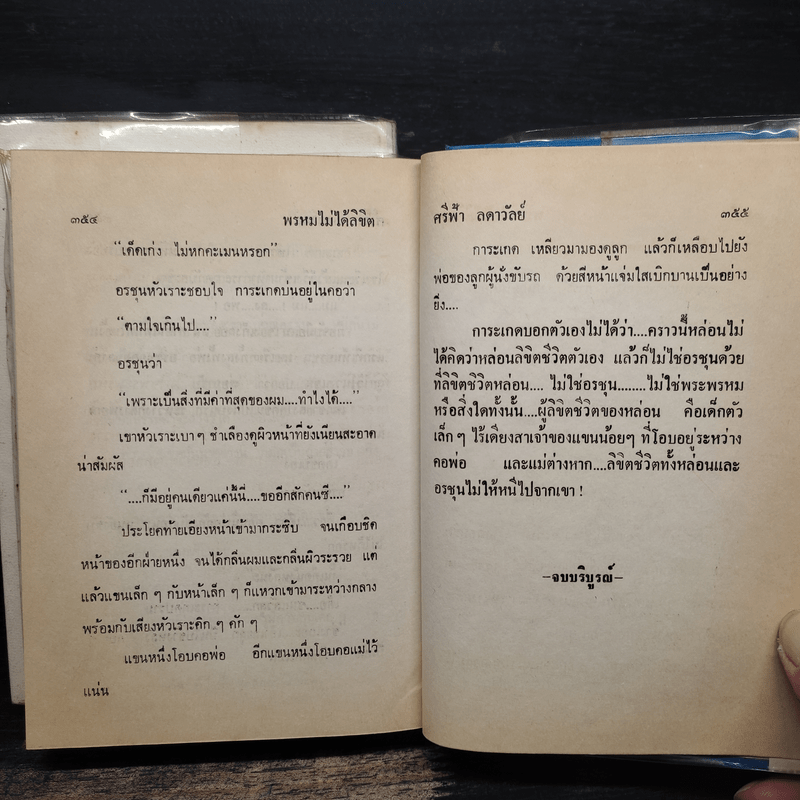 ๓๕๔ พรหมไม่ได้ลิขิต
“เด็คเก่ง ไม่หกคะเมนหรอก”
อรชุนหัวเราะชอบใจ การะเกดบ่นอยู่ในคอว่า
“ตามใจเกินไป....”
อรชุนว่า
“เพราะเป็นสิ่งที่มีค่าที่สุดของผม....ทำไงได้....”
เขาหัวเราะเบา ๆ ชำเลืองดูผิวหน้าที่ยังเนียนสะอาด
น่าสัมผัส
“....ก็มีอยู่คนเดียวแค่นี้นี่....ขออีกสักคนซี....”
ประโยคท้ายเอียงหน้าเข้ามากระซิบ จนเกือบชิด
หน้าของอีกฝ่ายหนึ่ง จนได้กลิ่นผมและกลิ่นผิวระรวย แต่
แล้วแขนเล็ก ๆ กับหน้าเล็ก ๆ ก็แหวกเข้ามาระหว่างกลาง
พร้อมกับเสียงหัวเราะคิก ๆ คัก ๆ
แขนหนึ่งโอบคอพ่อ อีกแขนหนึ่งโอบคอแม่ไว้
แน่น
ศรีฟ้า ลดาวัลย์ ๓๕๕
การะเกด เหลียวมามองดูลูก แล้วก็เหลือบไปยัง
พ่อของลูกผู้นั่งขับรถ ด้วยสีหน้าแจ่มใสเบิกบานเป็นอย่าง
ยิ่ง....
การะเกดบอกตัวเองไม่ได้ว่า....คราวนี้หล่อนไม่
ได้คิดว่าหล่อนลิขิตชีวิตตัวเอง แล้วก็ไม่ใช่อรชุนด้วย
ที่ลิขิตชีวิตหล่อน.... ไม่ใช่อรชุน........ไม่ใช่พระพรหม
หรือสิ่งใดทั้งนั้น....ผู้ลิขิตชีวิตของหล่อน คือเด็กตัว
เล็ก ๆ ไร้เดียงสาเจ้าของแขนน้อยๆ ที่โอบอยู่ระหว่าง
คอพ่อ และแม่ต่างหาก....ลิขิตชีวิตทั้งหล่อนและ
อรชุนไม่ให้หนีไปจากเขา !
–จบบริบูรณ์–